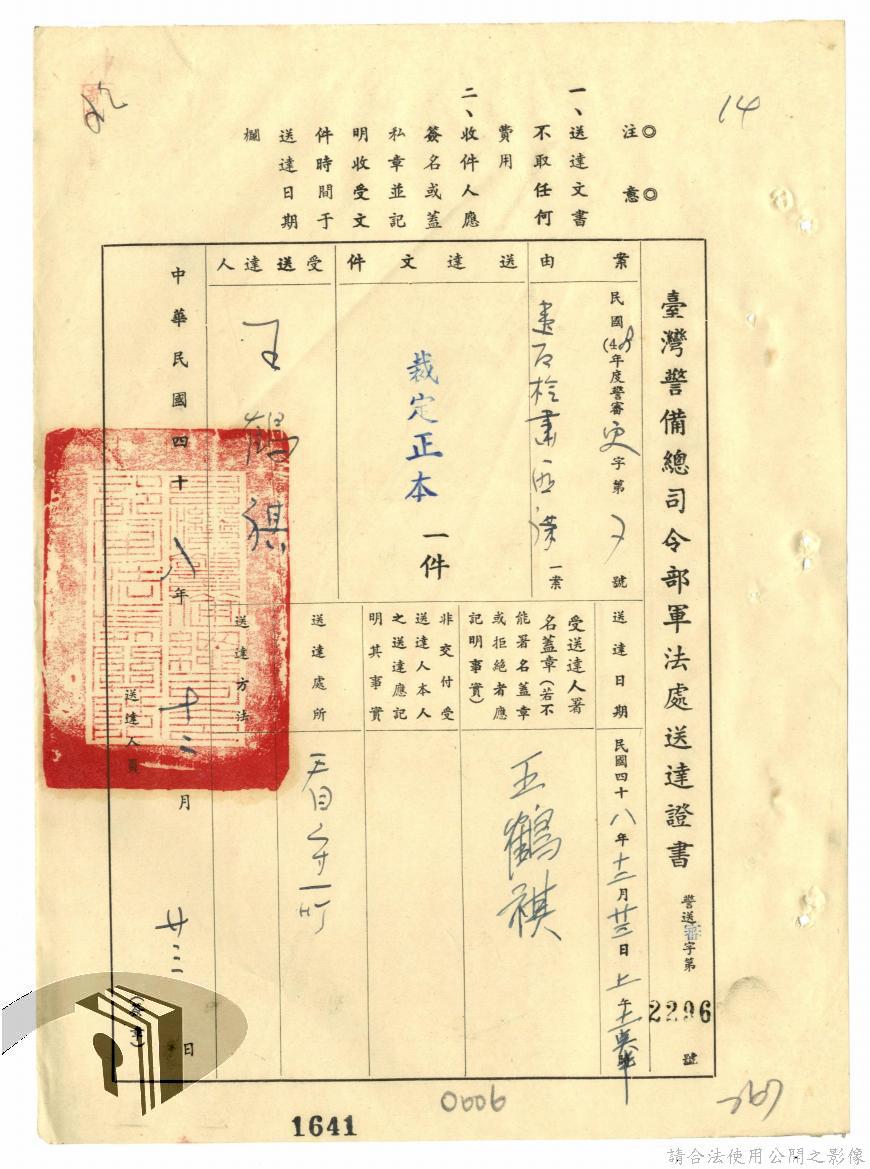 14
◎注意◎
一、送達文書
不取任何
費用
二、收件人應
簽名或蓋
私章並記
明收受文
件時間于
送達日期
欄
臺灣警備總司令部軍法處送達證書
警送審字第
2296
號
案由
民國(48年度警審更字第 號
一案
送達文件
裁定正本 一件
受送達人
王鶴祺
送達日期
民國四十八年十二月廿三日上午
受送達人署
名蓋章(若不
能署名蓋章
或拒絕者應
記明事實)
王鶴祺
非交付受
送達人本人
之送達應記
明其事實
送達處所
送達方法
中華民國四十八年十二月廿三日
送達人員
(簽章)
0006
1641
請合法使用公開之影像